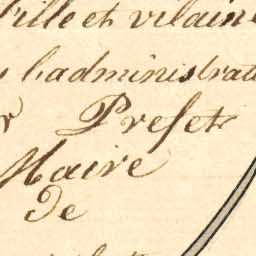 ille et vilaine
l'administrati
Prefet
Maire
De